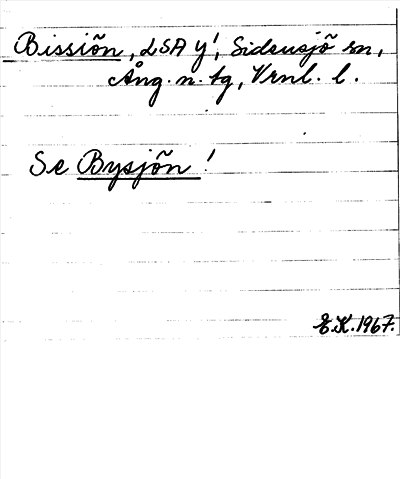 Bissiön, LSA y!, Sidensjö sn,
Ång. n. tg, Vrnl. l.
Se Bysjön!
E.K. 1967.